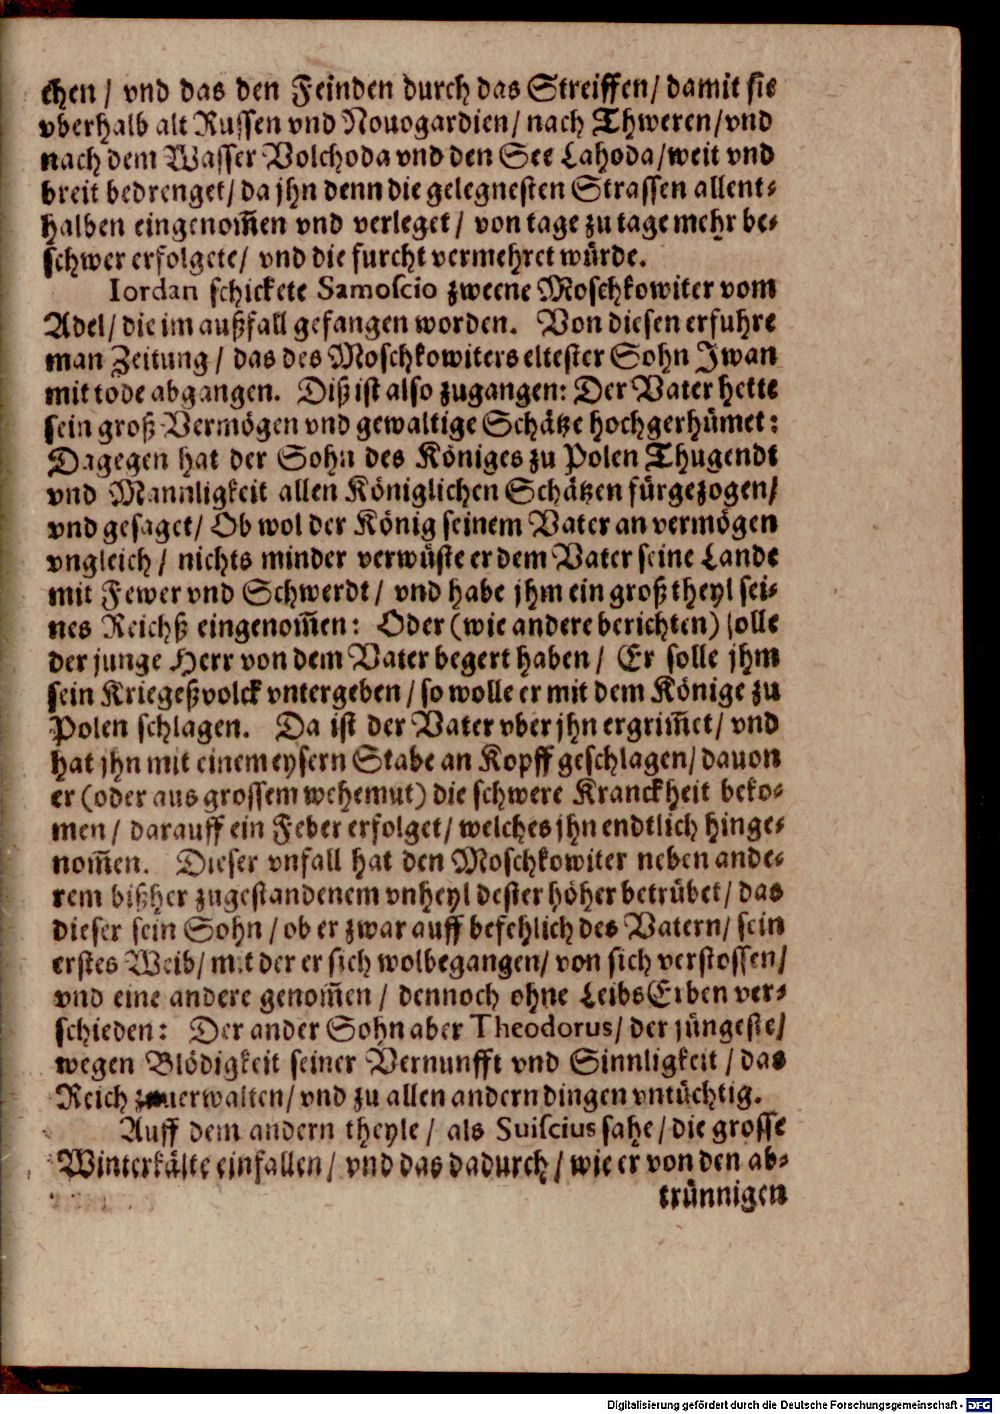 chen/ vnd das den Feinden durch das Streiffen/ damit sie
vberhalb alt Russen vnd Nouogardien/ nach Thweren/ vnd
nach dem Wasser Volchoda vnd den See Lahoda/ weit vnd
breit bedrenget/ da jhn denn die gelegnesten Strassen allent-
halben eingenom̃en vnd verleget/ von tage zu tage mehr be-
schwer erfolgete/ vnd die furcht vermehret würde.
Iordan schickete Samoscio zweene Moschkowiter vom
Adel/ die im außfall gefangen worden. Von diesen erfuhre
man Zeitung/ das des Moschkowiters eltester Sohn Jwan
mit tode abgangen. Diß ist also zugangen: Der Vater hette
sein groß Vermögen vnd gewaltige Schätze hochgerhümet:
Dagegen hat der Sohn des Königes zu Polen Thugendt
vnd Mannligkeit allen Königlichen Schätzen fürgezogen/
vnd gesaget/ Ob wol der König seinem Vater an vermögen
vngleich/ nichts minder verwüste er dem Vater seine Lande
mit Fewer vnd Schwerdt/ vnd habe jhm ein groß theyl sei-
nes Reichß eingenom̃en: Oder (wie andere berichten) solle
der junge Herr von dem Vater begert haben/ Er solle jhm
sein Kriegeßvolck vntergeben/ so wolle er mit dem Könige zu
Polen schlagen. Da ist der Vater vber jhn ergrim̃et/ vnd
hat jhn mit einem eysern Stabe an Kopff geschlagen/ dauon
er (oder aus grossem wehemut) die schwere Kranckheit beko-
men/ darauff ein Feber erfolget/ welches jhn endtlich hinge-
nom̃en. Dieser vnfall hat den Moschkowiter neben ande-
rem bißher zugestandenem vnheyl dester höher betrübet/ das
dieser sein Sohn/ ob er zwar auff befehlich des Vatern/ sein
erstes Weib/ mit der er sich wolbegangen/ von sich verstossen/
vnd eine andere genom̃en/ dennoch ohne LeibsErben ver-
schieden: Der ander Sohn aber Theodorus/ der jüngeste/
wegen Blödigkeit seiner Vernunfft vnd Sinnligkeit/ das
Reich zuuerwalten/ vnd zu allen andern dingen vntüchtig.
Auff dem andern theyle/ als Suiscius sahe/ die grosse
Winterkälte einfallen/ vnd das dadurch/ wie er von den ab-
trünnigen
Digitalisierung gefördert durch die Deutsche Forschungsgemeinschaft - DFG